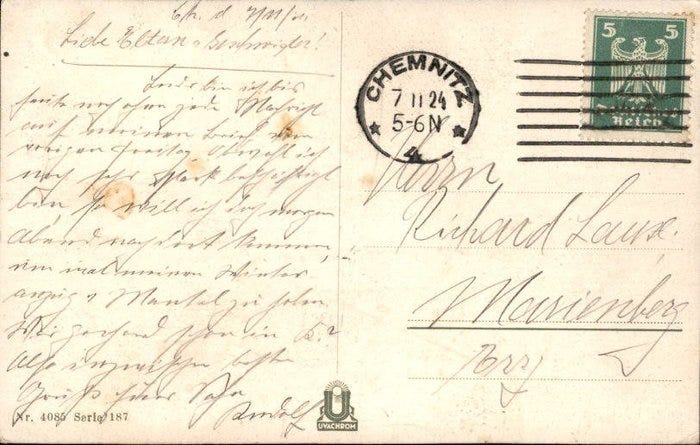 Ch. d. 7/11/24.
Liebe Eltern u. Geschwister!
Leider bin ich bis
heute noch ohne jede Nachricht
auf meinen Brief vom
vorigen Freitag. Obwohl ich
noch sehr stark beschäftigt
bin, so will ich doch morgen
Abend nach dort kommen,
um mal meinen Winter
anzug u. Mantel zu holen.
schon in
Also inzwischen beste
Grüße Euer Sohn
Rudolf
Nr. 4085 Serie 187
UVACHROM
CHEMNITZ
7 11 24
5-6 N
4
5 5
Reich
Herrn
Richard
Marienberg
Erzg